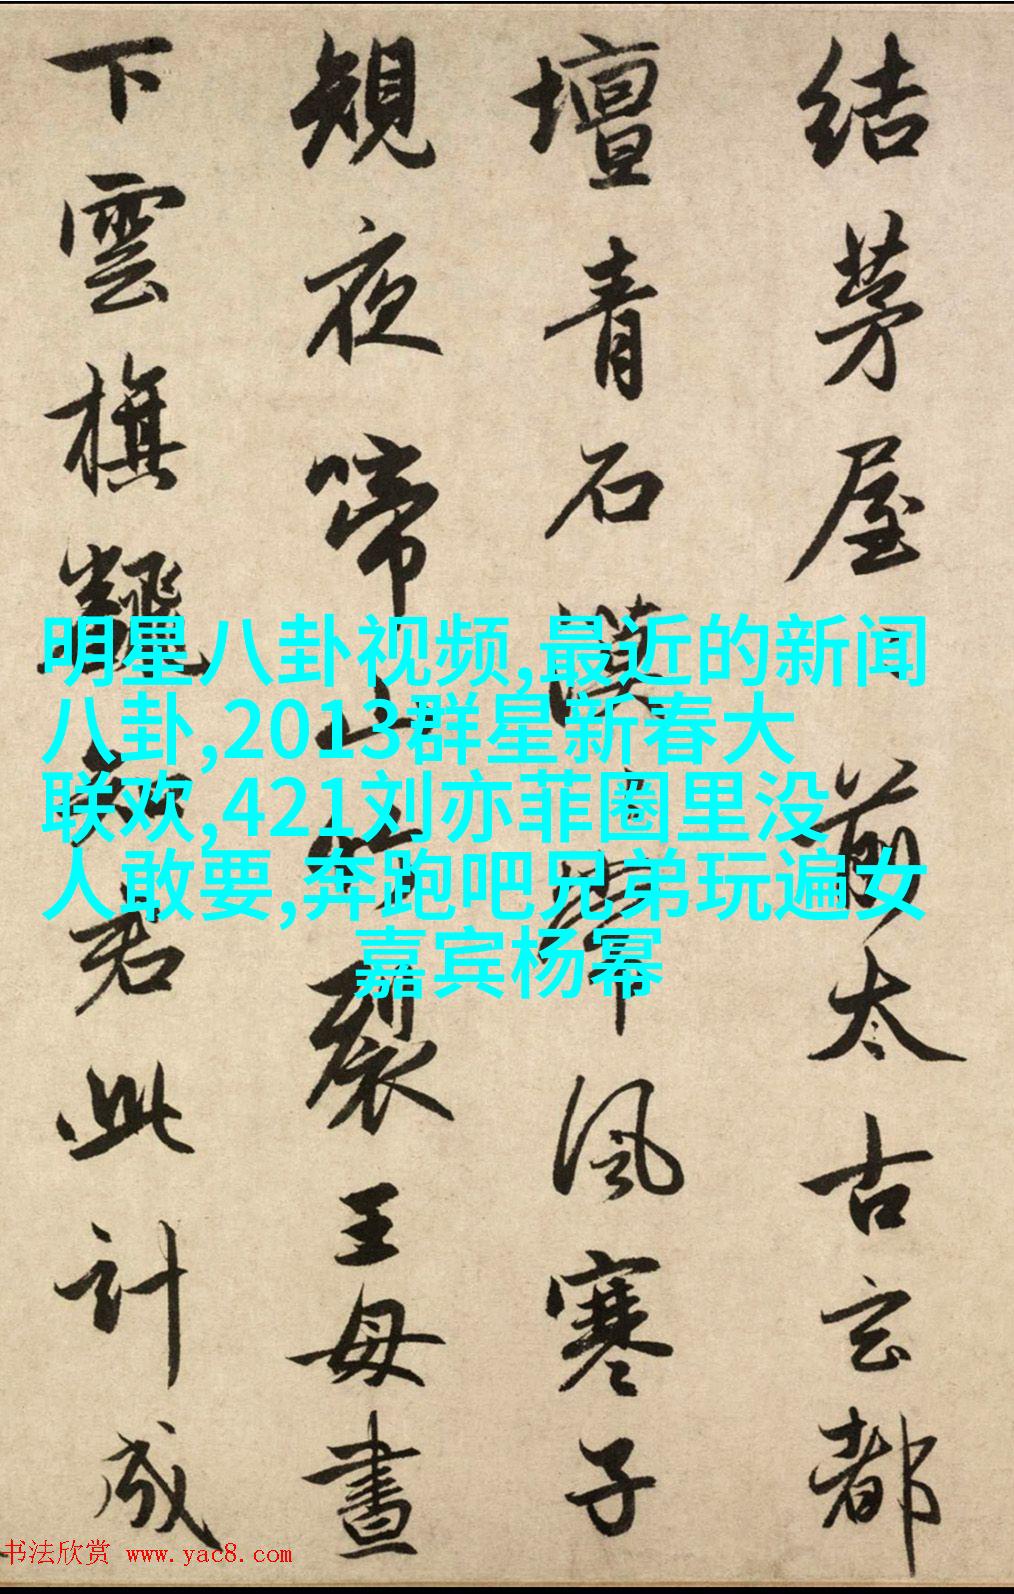 结茅屋前太古玄都
壇青石漠〻常風寒子
規夜啼山竹裂王母晝
下雲旗翻知君此計成
明星八卦视频,最近的新闻
八卦,2013群星新春大
联欢,421刘亦菲圈里没
人敢要,奔跑吧兄弟玩遍女
嘉宾杨幂
书法欣赏 www.yac8.com